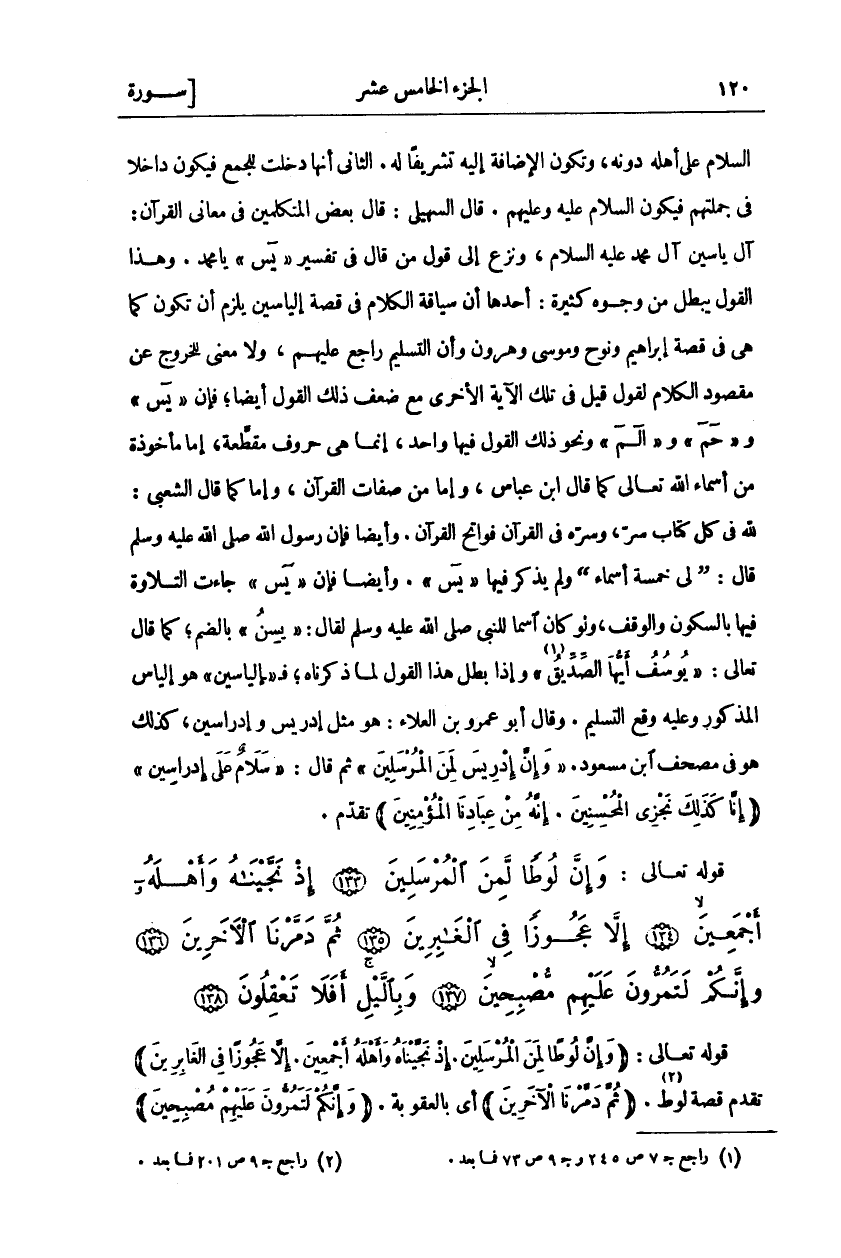 ١٢٠ الجزء الخامس عشر [ســـورة
السلام على أهله دونه، وتكون الإضافة إليه تشريفًا له. الثانى أنها دخلت للجمع فيكون داخلا
فى جملتهم فيكون السلام عليه وعليهم. قال السهيلى: قال بعض المتكلمين فى معانى القرآن:
آل ياسين آل محمد عليه السلام، ونزع إلى قول من قال فى تفسير «يَس» يامحمد. وهــذا
القول يبطل من وجــوه كثيرة: أحدها أن سياقة الكلام فى قصة إلياسين يلزم أن تكون كما
هى فى قصة إبراهيم ونوح وموسى وهرون وأن التسليم راجع عليهــم، ولا معنى للخروج عن
مقصود الكلام لقول قيل فى تلك الآية الأخرى مع ضعف ذلك القول أيضا؛ فإن «يَس»
و«حَمَ» و«الَـمَ» ونحو ذلك القول فيها واحد، إنمــا هى حروف مقطَّعة، إما مأخوذة
من أسماء الله تعــالى كما قال ابن عباس، وإما من صفات القرآن، وإما كما قال الشعبى:
لله فى كل كتاب سرّ، وسرّه فى القرآن فواتح القرآن. وأيضا فإن رسول الله صلى الله عليه وسلم
قال: ”لى خمسة أسماء“ ولم يذكر فيها «يَس». وأيضــا فإن «يَس» جاءت التــلاوة
فيها بالسكون والوقف، ولو كان آسما للنبى صلى الله عليه وسلم لقال: «يسنُ» بالضم؛ كما قال
تعالى: «يُوسُفُ أَيُّهَا الصِّدِّيقُ»(١) وإذا بطل هذا القول لمــا ذكرناه؛ فـ«ـإلياسين» هو إلياس
المذكور وعليه وقع التسليم. وقال أبو عمرو بن العلاء: هو مثل إدريس وإدراسين، كذلك
هو فى مصحف آبن مسعود. «وَإِنَّ إِدْرِيسَ لَمِنَ الْمُرْسَلِينَ» ثم قال: «سَلَامٌ عَلَى إدراسين»
﴿إِنَّا كَذَلِكَ نَجْزِى الْمُحْسِنِينَ. إِنَّهُ مِنْ عِبَادِنَا الْمُؤْمِنِينَ﴾ تقدّم.
قوله تعــالى: وَإِنَّ لُوطًا لَّمِنَ ٱلْمُرْسَلِينَ ١٣٣ إِذْ نَجَّيْنَـٰهُ وَأَهْـلَهُۥٓ
أَجْمَعِينَ ١٣٤ إِلَّا عَجُـوزًا فِى ٱلْغَـٰبِرِينَ ١٣٥ ثُمَّ دَمَّرْنَا ٱلْآخَرِينَ ١٣٦
وَإِنَّكُمْ لَتَمُرُّونَ عَلَيْهِم مُّصْبِحِينَ ١٣٧ وَبِٱلَّيْلِ أَفَلَا تَعْقِلُونَ ١٣٨
قوله تعــالى: ﴿وَإِنَّ لُوطًا لَمِنَ الْمُرْسَلِينَ. إِذْ نَجَّيْنَاهُ وَأَهْلَهُ أَجْمَعِينَ. إِلَّا عَجُوزًا فِى الْغَابِرِينَ﴾
تقدم قصة لوط(٢). ﴿ثُمَّ دَمَّرْنَا الْآخَرِينَ﴾ أى بالعقوبة. ﴿وَإِنَّكُمْ لَتَمُرُّونَ عَلَيْهِمْ مُصْبِحِينَ﴾
(١) راجع جـ ٧ ص ٢٤٥ وجـ ٩ ص ٧٣ فــا بعد. (٢) راجع جـ ٩ ص ٢٠١ فــا بعد.